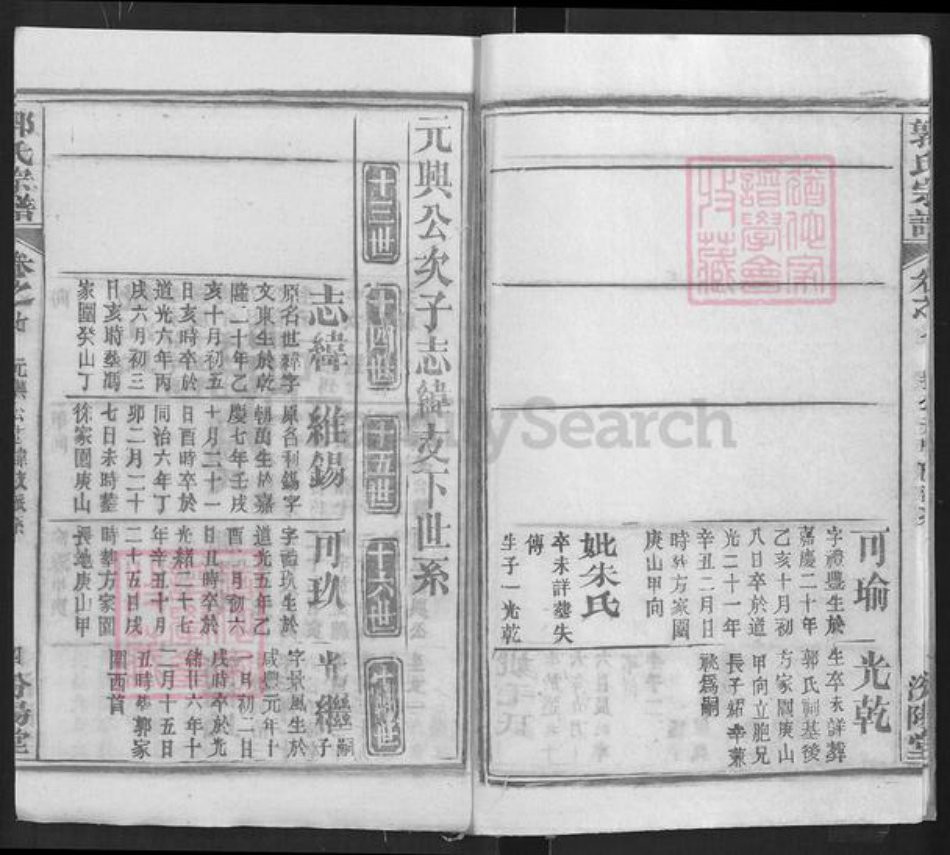 郭氏宗譜
可瑜
字禮豐生於
嘉慶二十年
乙亥十月初
八日卒於道
光二十一年
辛丑二月日
時葬方家園
庚山甲向
妣朱氏
卒未詳墓失
傳
生子一光乾
光乾
生卒未詳葬
郭氏祠基後
方家園庚山
甲向立胞兄
長子紹幸兼
祧為嗣
汾陽堂
元興公次子志緯支下世系
十三世
十四世
十五世
十六世
十七世
志緯
原名世緯字
文東生於乾
隆二十年乙
亥十月初五
日亥時卒於
道光六年丙
戌六月初三
日亥時葬馮
家園癸山丁
維錫
原名利錫字
朝萬生於嘉
慶七年壬戌
十月二十一
日酉時卒於
同治六年丁
卯二月二十
七日未時葬
徐家園庚山
可玖
字禮玖生於
道光五年乙
酉二月初六
日丑時卒於
光緒二十七
年辛丑十月
二十五日戌
時葬方家園
長地庚山甲
光繼
繼子嗣
字景風生於
咸豐元年十
一月初二日
戌時卒於光
緒廿六年十
二月十五日
丑時葬郭家
園酉首
郭氏宗譜
汾陽堂
FamilySearch